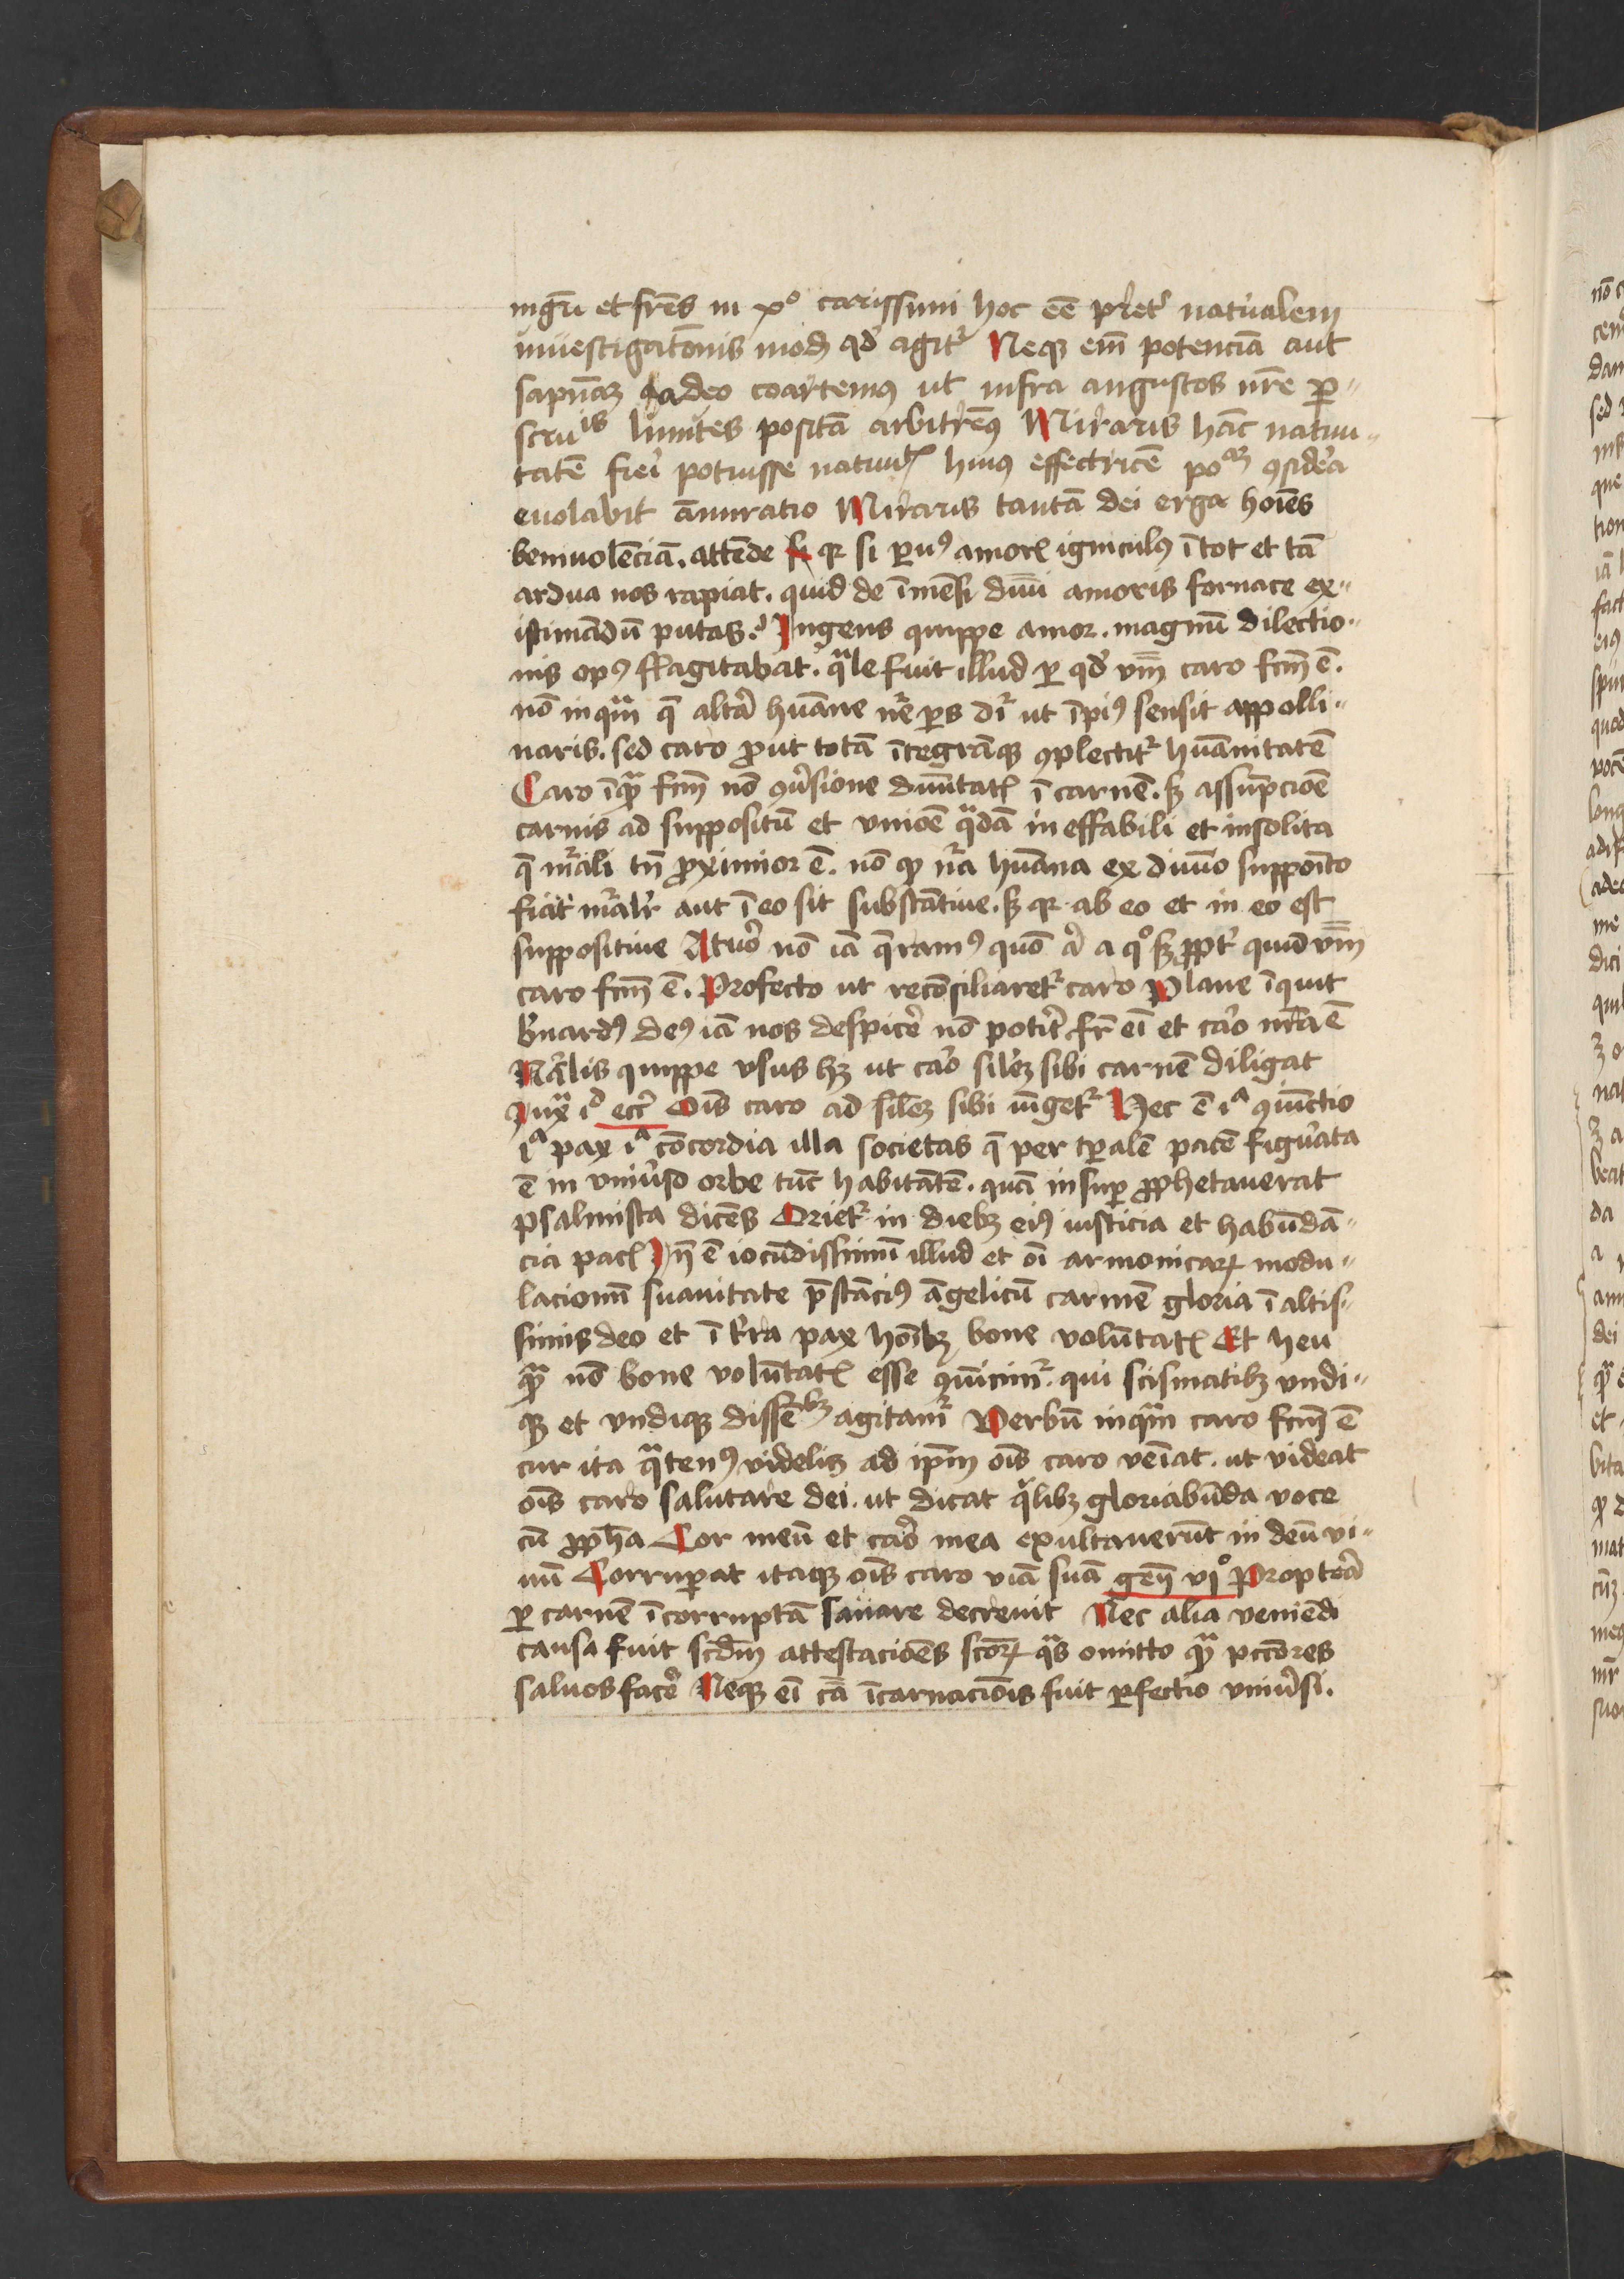 mgri̅ et fr̅es in xp̅o carissimi hoc ee̅ pret̉ nat̉ualem
inuestigat̅o̅nis modu̅ qd̉ agit᷑ Neqꝫ em̅ potencia̅ aut
sapn̅am adeo coartemꝰ ut infra angustos nr̅e ꝑ-
scru limites posita̅ arbitre̅ꝰ Miraris ha̅c natiui-
tate̅ fieri potuisse natiuit huiꝰ effectrice̅ po ꝯsid̉a
euolabit a̅miratio Miraris tanta̅ dei erga hoi̅es
beniuole̅cia̅. atte̅de qꝛ si ꝑuꝰ amorꝭ igniculꝰ i̅ tot et ta̅
ardua nos rapiat. quid de i̅me̅si diui̅ amoris fornace ex-
istima̅du̅ putas. Ingens quippe amor. magnu̅ dilectio-
nis opꝰ flagitabat. qᵃle fuit illud ꝑ qd̉ vm̅ caro fcm̅ e̅.
no̅ inqᵃm q̅ alt̉a hu̅ane nr̅e ꝑs dr̅ ut i̅piꝰ sensit appolli-
naris. sed caro ꝓut tota̅ i̅tegra̅qꝫ ꝯplectit᷑ hu̅anitate̅
Caro i̅qᵃ fcm̅ no̅ ꝯủsione diui̅tatꝭ i̅ carne̅. sꝫ assu̅pcio̅e
carnis ad suppositu̅ et vnio̅e qᵃda̅ ineffabili et insolita
q̅ nr̅ali tn̅ ꝓximior e̅. no̅ ꝙ nr̅a hu̅ana ex diui̅o suppoi̅to
fiat nr̅alit̉ aut i̅ eo sit substa̅tiue. sꝫ qꝛ ab eo et in eo est
suppositiue At ủo no̅ ia̅ q̅ramꝰ quo̅ a̅ a qᵒ sꝫ ꝓpt̉ quid vm̅
caro fcm̅ e̅. Profecto ut reco̅siliaret᷑ caro Plane i̅quit
b̉nardꝰ deꝰ ia̅ nos despic̉e no̅ potit̉ fr̅ ei̅ et caro nr̅a e̅
Nr̅alis quippe vsus hꝫ ut caro sile̅ꝫ sibi carne̅ diligat
Iuxᵃ iᵈ ecc̉ Oi̅s caro ad sile̅ꝫ sibi iu̅get᷑ Hec e̅ iᵃ ꝯiu̅ctio
iᵃ pax iᵃ co̅cordia illa societas q̅ per tꝑale̅ pace̅ figủata
e̅ in vniủso orbe tu̅c habita̅te̅. qua̅ insuꝑ ꝓphetauerat
psalmista dice̅s Oriet᷑ in diebꝫ eiꝰ iusticia et habu̅da̅-
cia pacꝭ Hn̅ e̅ iocu̅dissimu̅ illud et oi̅ armonicaꝝ modu-
lacionu̅ suauitate p̅sta̅ciꝰ a̅gelicu̅ carme̅ gloria i̅ altis-
simis deo et i̅ t̉ra pax ho̅ibꝫ bone volu̅tatꝭ Et heu
qᵃ no̅ bone volu̅tatꝭ esse ꝯui̅cim᷑. qui scismatibꝫ vndi-
qꝫ et vndiqꝫ disse̅bꝫ agitam᷑ Verbu̅ inqᵃm caro fcm̅ e̅
cur ita qᵃtenꝰ videliꝫ ad ip̅m oi̅s caro ve̅iat. ut videat
oi̅s caro salutare dei. ut dicat qᵃlibꝫ gloriabu̅da voce
cu̅ ꝓph̅a Cor meu̅ et caro mea exultaueru̅t in deu̅ vi-
uu̅ Corruꝑat itaqꝫ oi̅s caro via̅ sua̅ gen̅ vjᵒ Propt̉ea
ꝑ carne̅ i̅corrupta̅ saluare decreuit Nec alia venie̅di
causa fuit scd̅m attestacio̅es sco̅ꝝ qᵃs omitto qᵃ pcc̅ores
saluos fac̉e Neqꝫ ei̅ ca̅ i̅carnacio̅is fuit ꝑfectio vniủsi.